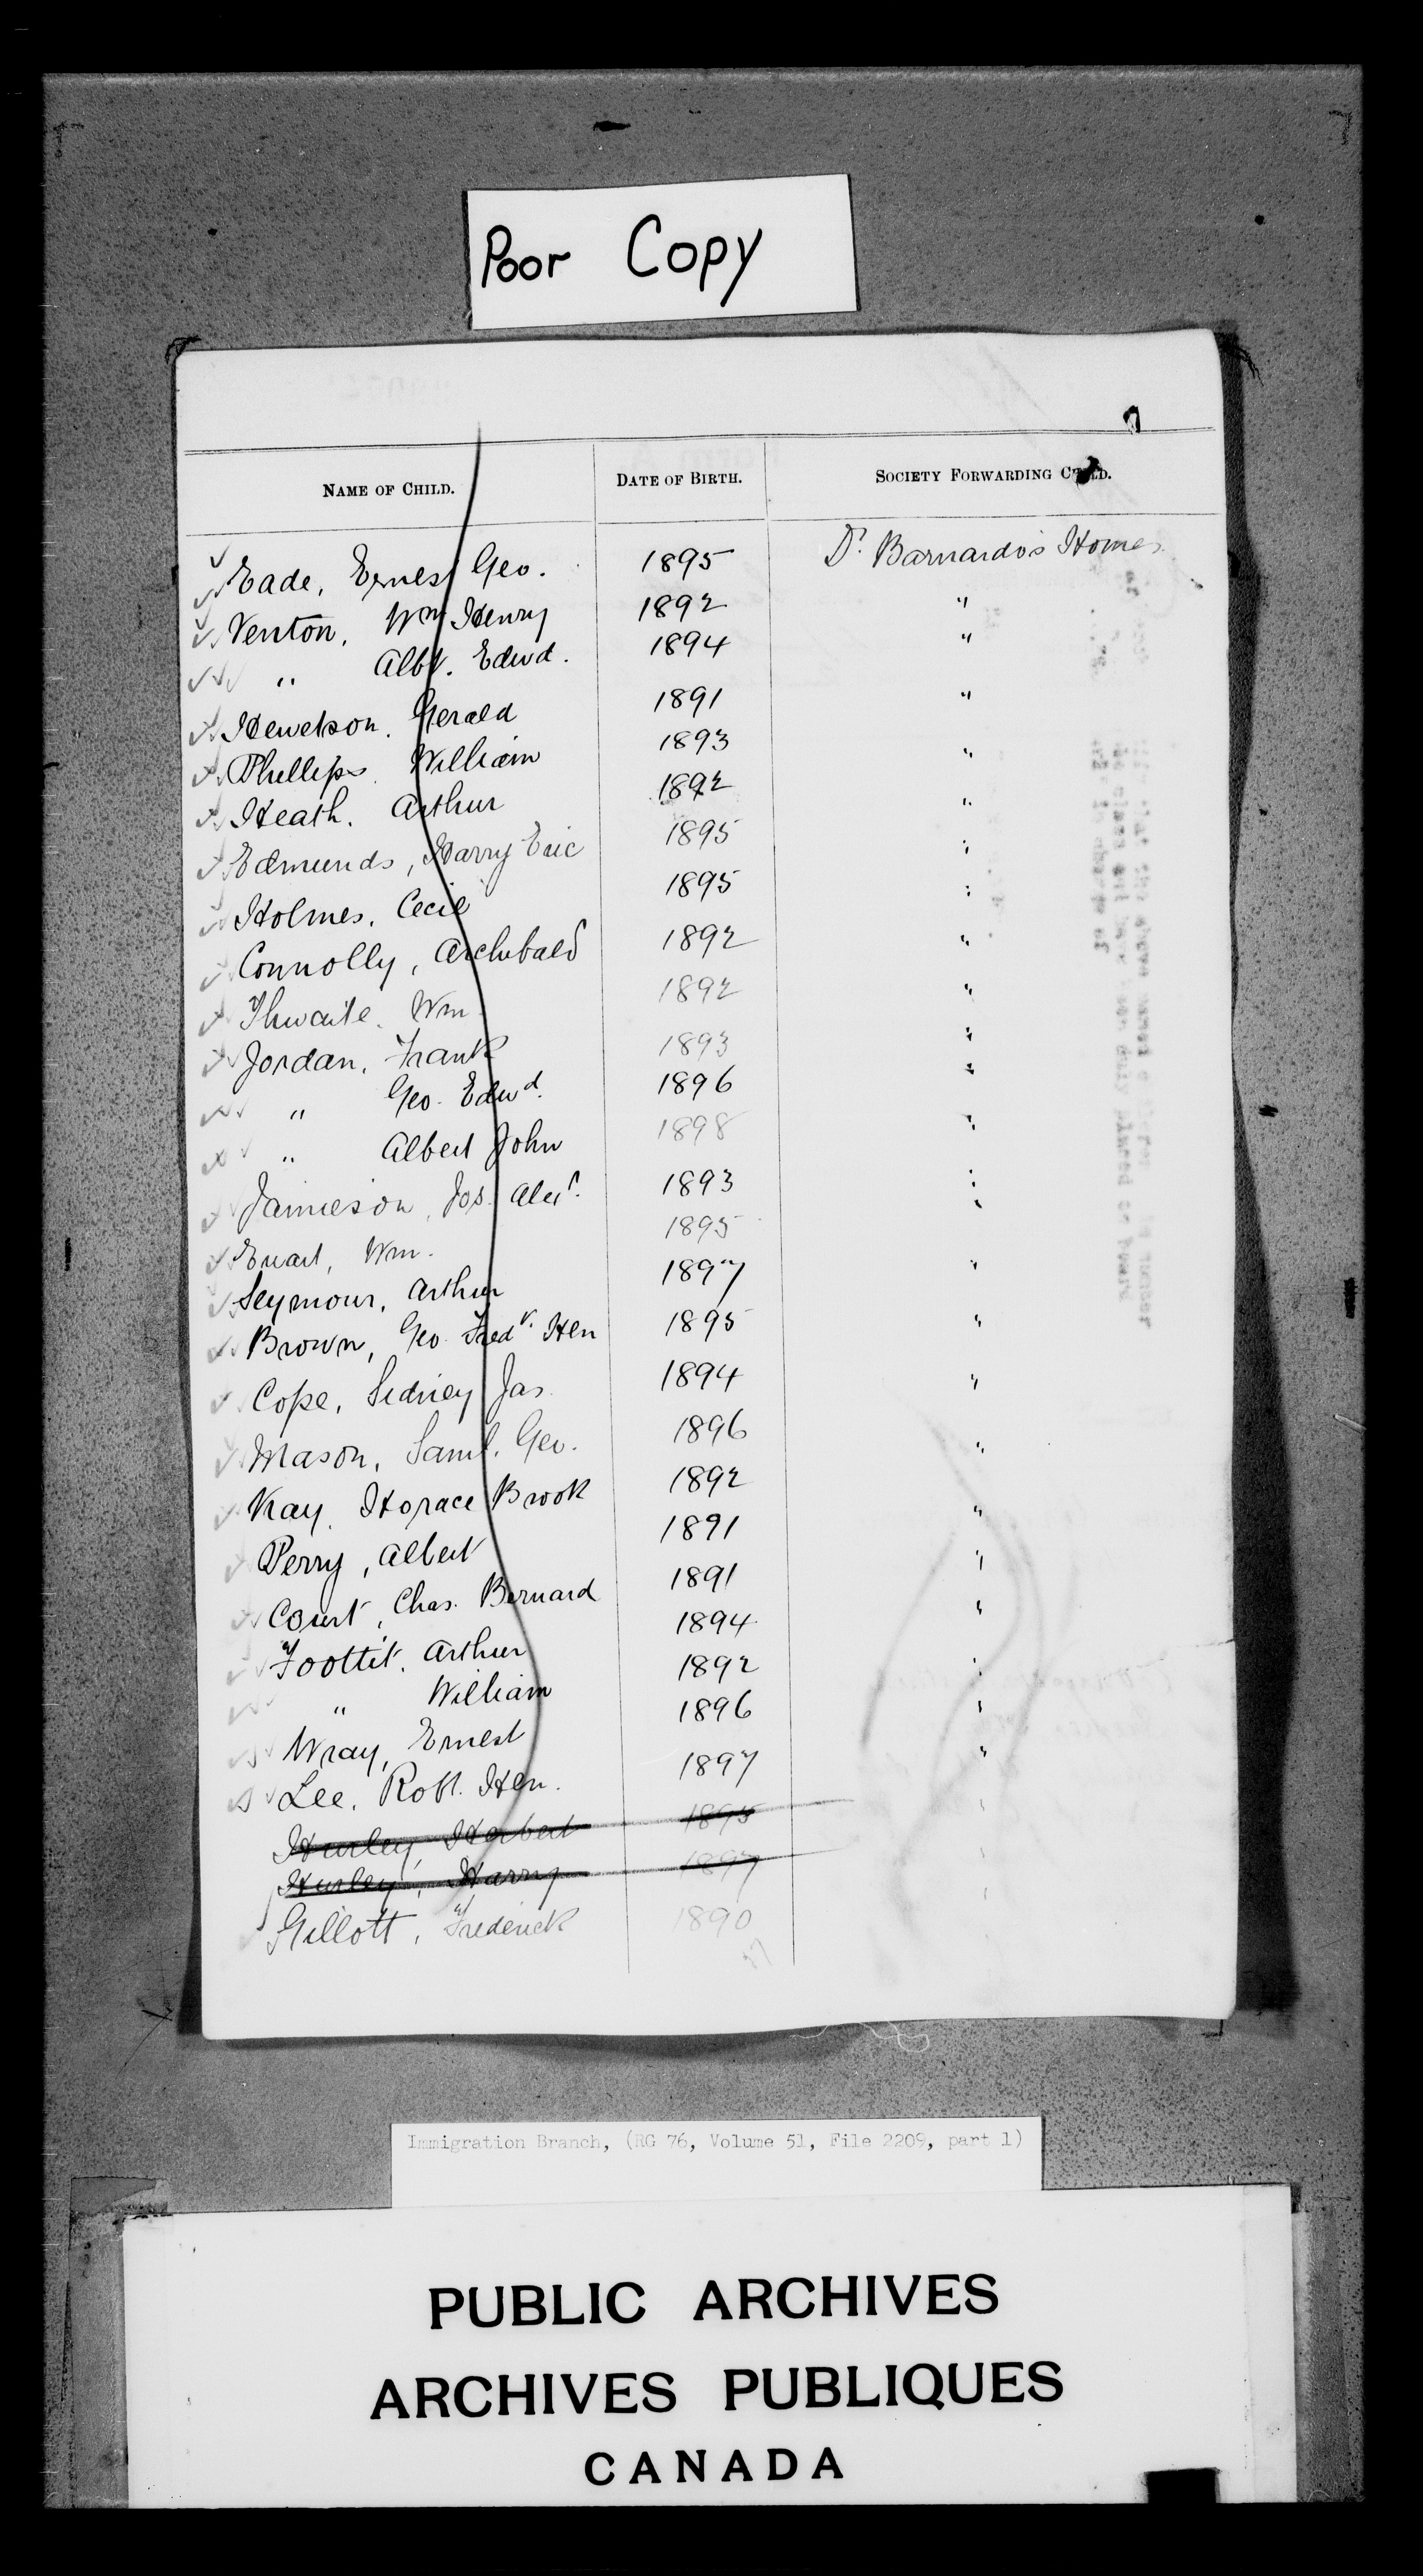 Poor Copy
NAME OF CHILD. DATE OF BIRTH. SOCIETY FORWARDING CHILD.
Eade, Ernest Geo. 1895 Dr. Barnardo's Homes
Venton, Wm Henry 1892 "
" Albt. Edwd. 1894 "
Hewetson, Gerald 1891 "
Phillips, William 1893 "
Heath, Arthur 1892 "
Edmunds, Harry Eric 1895 "
Holmes, Cecil 1895 "
Connolly, Archibald 1892 "
Thwaite, Wm 1892 "
Jordan, Frank 1893 "
" Geo. Edwd. 1896 "
" Albert John 1898 "
Jamieson, Jos. Alexr. 1893 "
Wm. 1895 "
Seymour, Arthur 1897 "
Brown, Geo. Fredk. Hen 1895 "
Cope, Sidney Jas. 1894 "
Mason, Saml. Geo. 1896 "
Kay, Horace Brook 1892 "
Perry, Albert 1891 "
Court, Chas. Bernard 1891 "
Foottit, Arthur 1894 "
" William 1892 "
Wray, Ernest 1896 "
Lee, Robt. Hen. 1897 "
Hurley, Herbert 1895 "
Hurley, Harry 1897 "
Gillott, Frederick 1890 "
Immigration Branch, (RG 76, Volume 51, File 2209, part 1)
PUBLIC ARCHIVES
ARCHIVES PUBLIQUES
CANADA